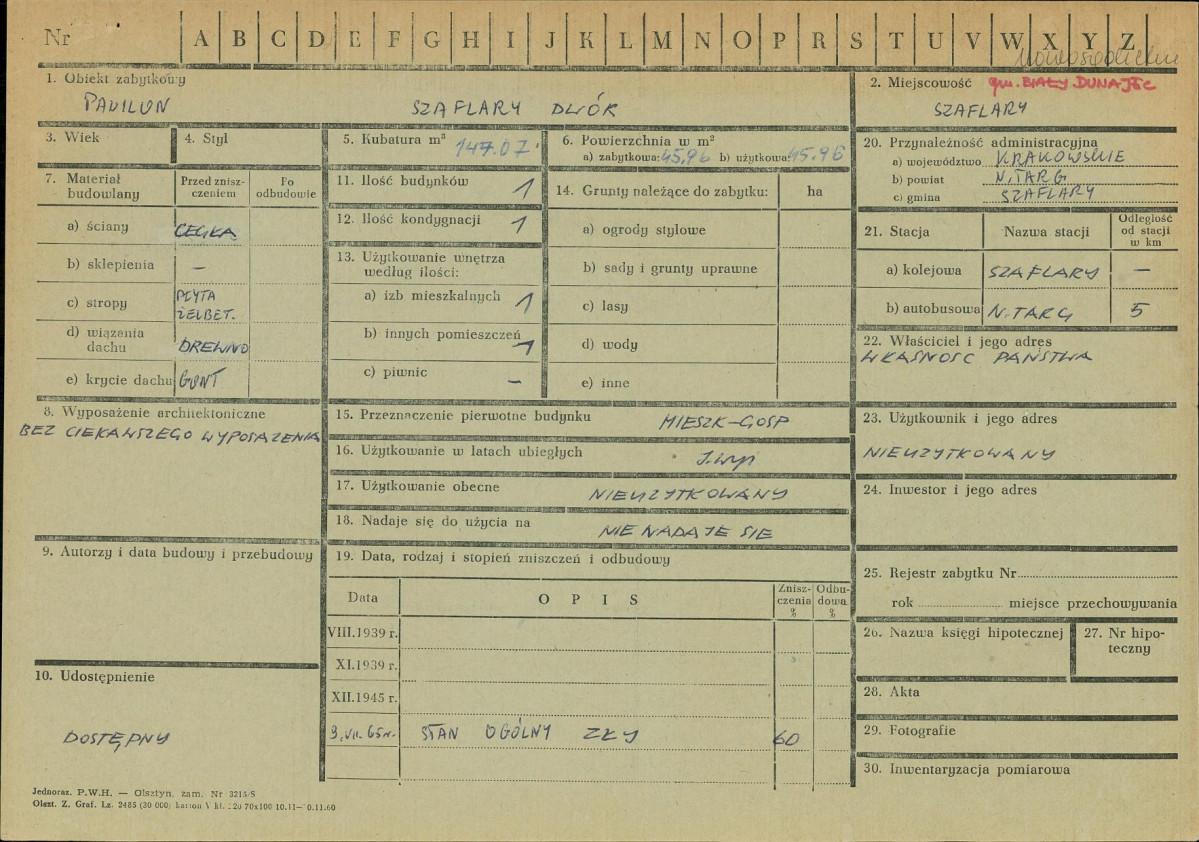 Nr A B C D E F G H I J K L M N O P R S T U V W X Y Z
1. Obiekt zabytkowy
PAVILON SZAFLARY DWÓR
2. Miejscowość gm. BIAŁY DUNAJEC
SZAFLARY
3. Wiek
4. Styl
5. Kubatura m³ 147.07
6. Powierzchnia w m²
a) zabytkowa: 45,96 b) użytkowa: 45.96
7. Materiał budowlany
Przed zniszczeniem
Po odbudowie
a) ściany CEGŁĄ
b) sklepienia —
c) stropy PŁYTA ŻELBET.
d) wiązania dachu DREWNO
e) krycie dachu GONT
8. Wyposażenie architektoniczne
BEZ CIEKAWSZEGO WYPOSAŻENIA
9. Autorzy i data budowy i przebudowy
10. Udostępnienie
DOSTĘPNY
11. Ilość budynków 1
12. Ilość kondygnacji 1
13. Użytkowanie wnętrza
według ilości:
a) izb mieszkalnych 1
b) innych pomieszczeń 1
c) piwnic —
14. Grunty należące do zabytku: ha
a) ogrody stylowe
b) sady i grunty uprawne
c) lasy
d) wody
e) inne
15. Przeznaczenie pierwotne budynku MIESZK-GOSP
16. Użytkowanie w latach ubiegłych
17. Użytkowanie obecne NIEUŻYTKOWANY
18. Nadaje się do użycia na NIE NADAJE SIĘ
19. Data, rodzaj i stopień zniszczeń i odbudowy
Data
O P I S
Zniszczenia %
Odbudowa %
VIII.1939 r.
XI.1939 r.
XII.1945 r.
9.VII.65r. STAN OGÓLNY ZŁY 60
20. Przynależność administracyjna
a) województwo KRAKOWSKIE
b) powiat N.TARG
c) gmina SZAFLARY
21. Stacja
Nazwa stacji
Odległość od stacji w km
a) kolejowa SZAFLARY —
b) autobusowa N.TARG 5
22. Właściciel i jego adres
WŁASNOSC PAŃSTWA
23. Użytkownik i jego adres
NIEUŻYTKOWANY
24. Inwestor i jego adres
25. Rejestr zabytku Nr
rok miejsce przechowywania
26. Nazwa księgi hipotecznej
27. Nr hipoteczny
28. Akta
29. Fotografie
30. Inwentaryzacja pomiarowa
Jednoraz. P.W.H. — Olsztyn, zam. Nr 3215/S
Olszt. Z. Graf. Lz. 2485 (30 000) karton V kl. 220 70x100 10.11—10.11.60